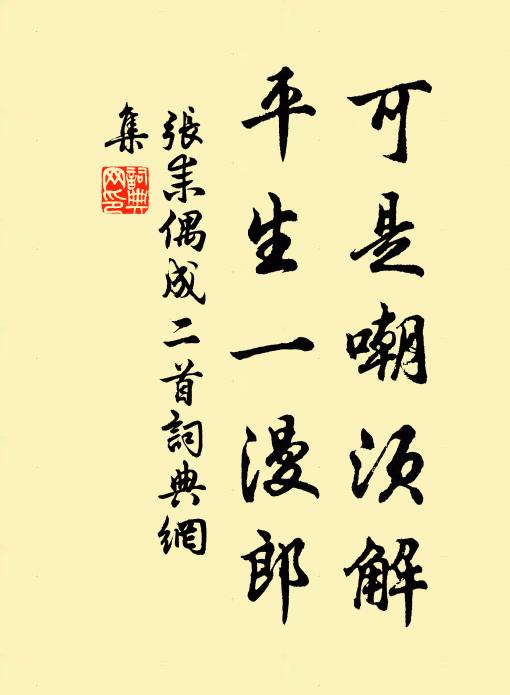 可是嘲須解
平生一漫郎
張耒偶成二首詞典網
集
詞典
網印